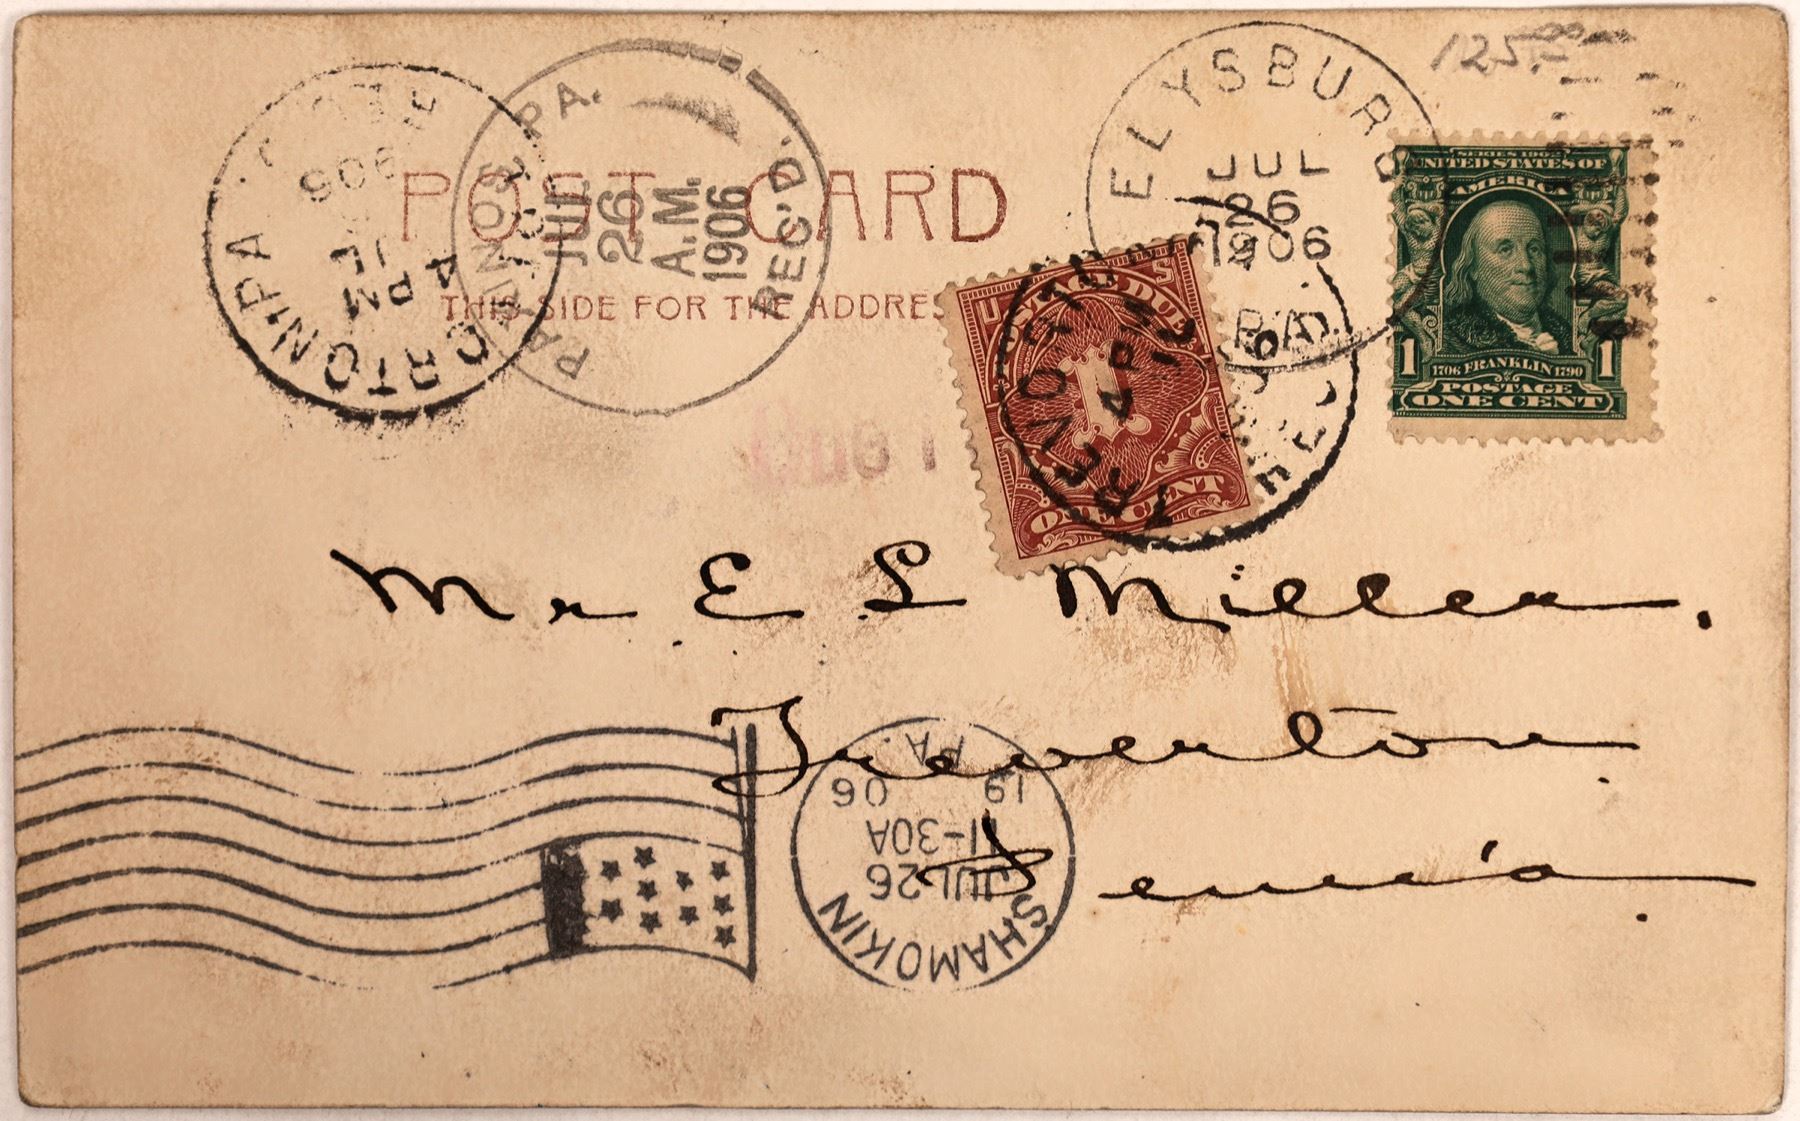 125.-
ELYSBURG
JUL
26
1906
PA.
PAXINOS, PA.
JUL
26
A.M.
1906
REC'D.
4 PM
906
POST CARD
THIS SIDE FOR THE ADDRES
SERIES 1902
UNITED STATES OF
AMERICA
1 1
1706 FRANKLIN 1790
POSTAGE
ONE CENT
U S
POSTAGE DUE
1
ONE CENT
4 PM
Due 1
Mr E L Miller.
Treverton
Penn'a.
SHAMOKIN
JUL 26
11-30A
19 06
PA.